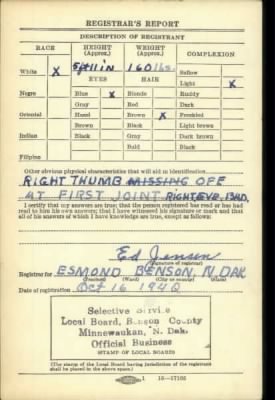 REGISTRAR'S REPORT
DESCRIPTION OF REGISTRANT
RACE HEIGHT (Approx.) WEIGHT (Approx.) COMPLEXION
5ft 11in 160 lbs.
White X EYES HAIR Sallow
Light X
Negro Blue X Blonde Ruddy
Gray Red Dark
Oriental Hazel Brown X Freckled
Brown Black Light brown
Indian Black Gray Dark brown
Bald Black
Filipino
Other obvious physical characteristics that will aid in identification
RIGHT THUMB MISSING OFF
AT FIRST JOINT RIGHT EYE BAD,
I certify that my answers are true; that the person registered has read or has had
read to him his own answers; that I have witnessed his signature or mark and that
all of his answers of which I have knowledge are true, except as follows:
Ed Jensen
(Signature of registrar)
Registrar for ESMOND BENSON, N. DAK
(City or county) (State)
Date of registration Oct 16 1940
Selective Service
Local Board, Benson County
Minnewaukan, N. Dak.
Official Business
STAMP OF LOCAL BOARD
(The stamp of the Local Board having jurisdiction of the registrant
shall be placed in the above space.)
1 16-17105